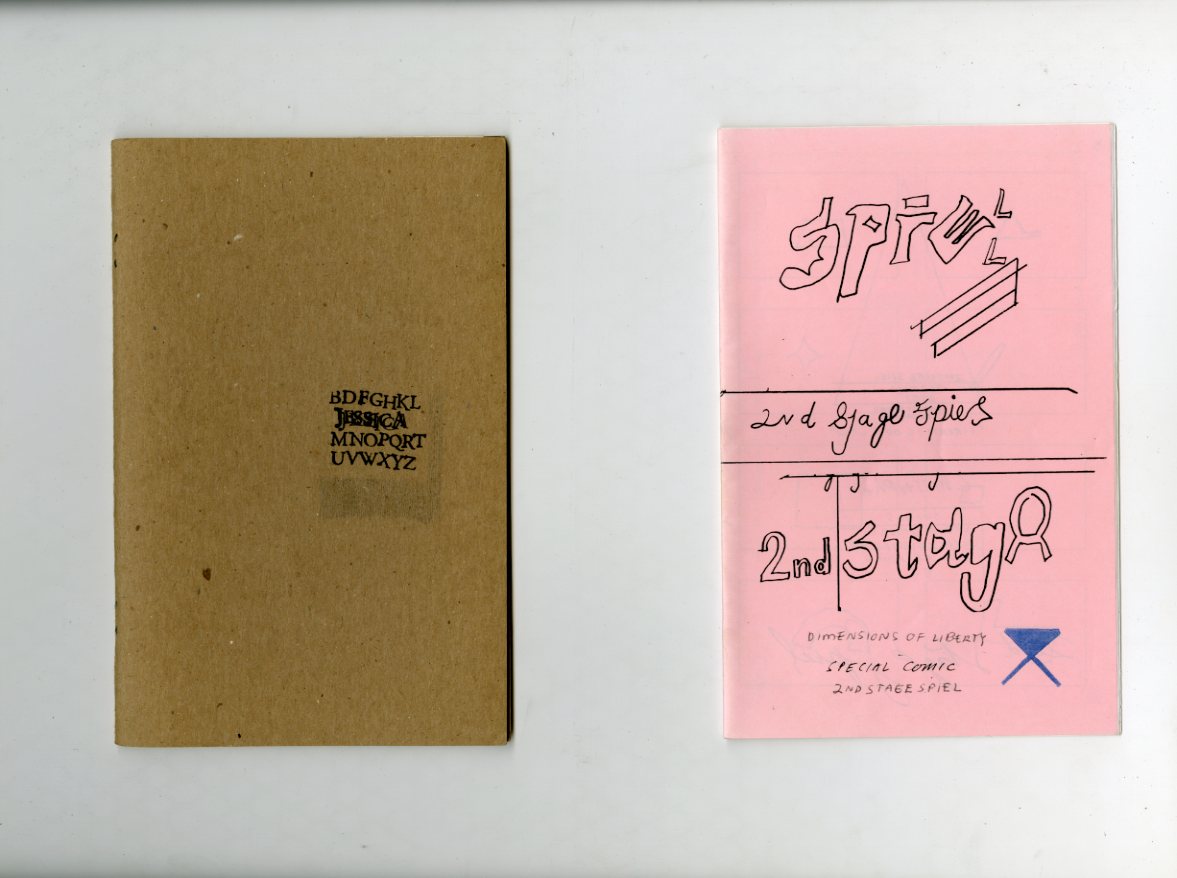 BDFGHKL
JESSICA
MNOPQRT
UVWXYZ
SPIEL
2nd Stage Spiel
2nd stage
DIMENSIONS OF LIBERTY
SPECIAL COMIC
2ND STAGE SPIEL